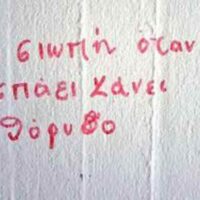 σιωπή όταν
σπάει κάνει
θόρυβο